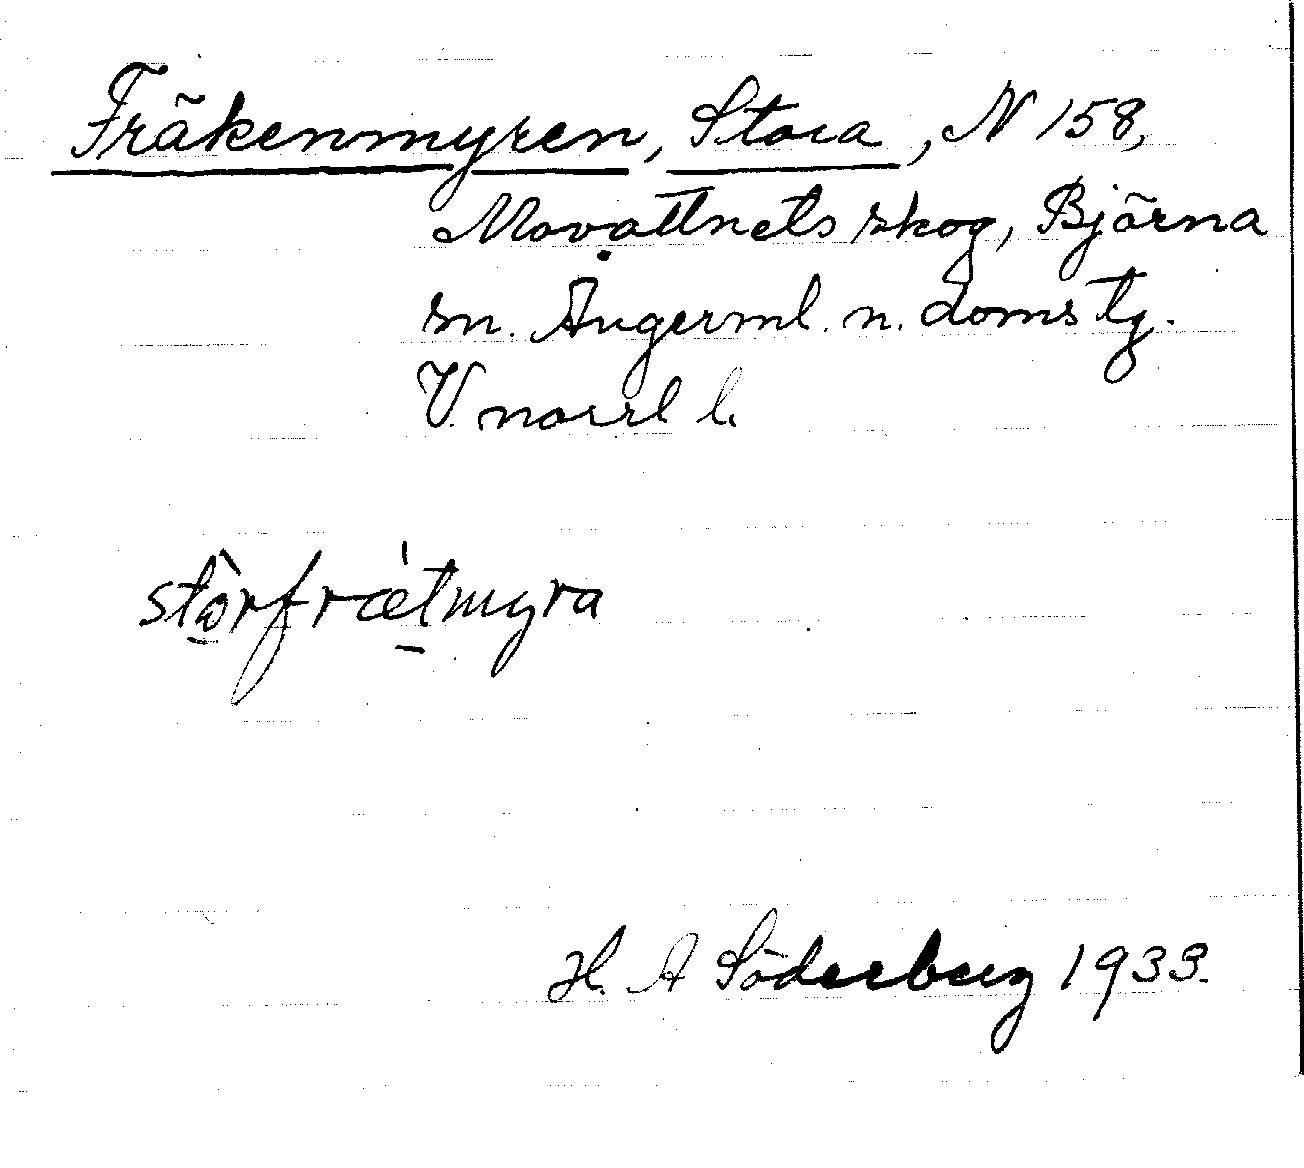 Fräkenmyren, Stora, N 158,
Movattnets skog, Björna
sn. Ångerml. n. doms tg.
V. norrl l.
stòrfrǽtmyra
H. A Söderberg 1933.